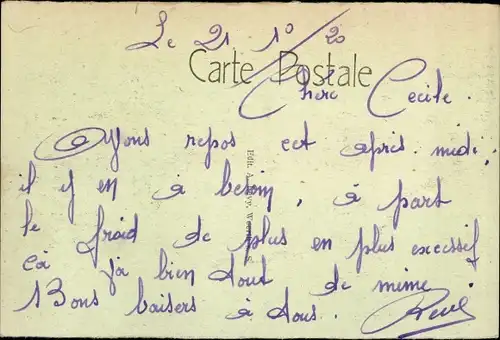 Le 21 1° 20
Carte Postale
Chère Cecile.
Ayons repos cet après midi,
il y en à besoin, à part
le froid de plus en plus excessif
ça va bien tout de même
Bons baisers à tous. René
Edit.